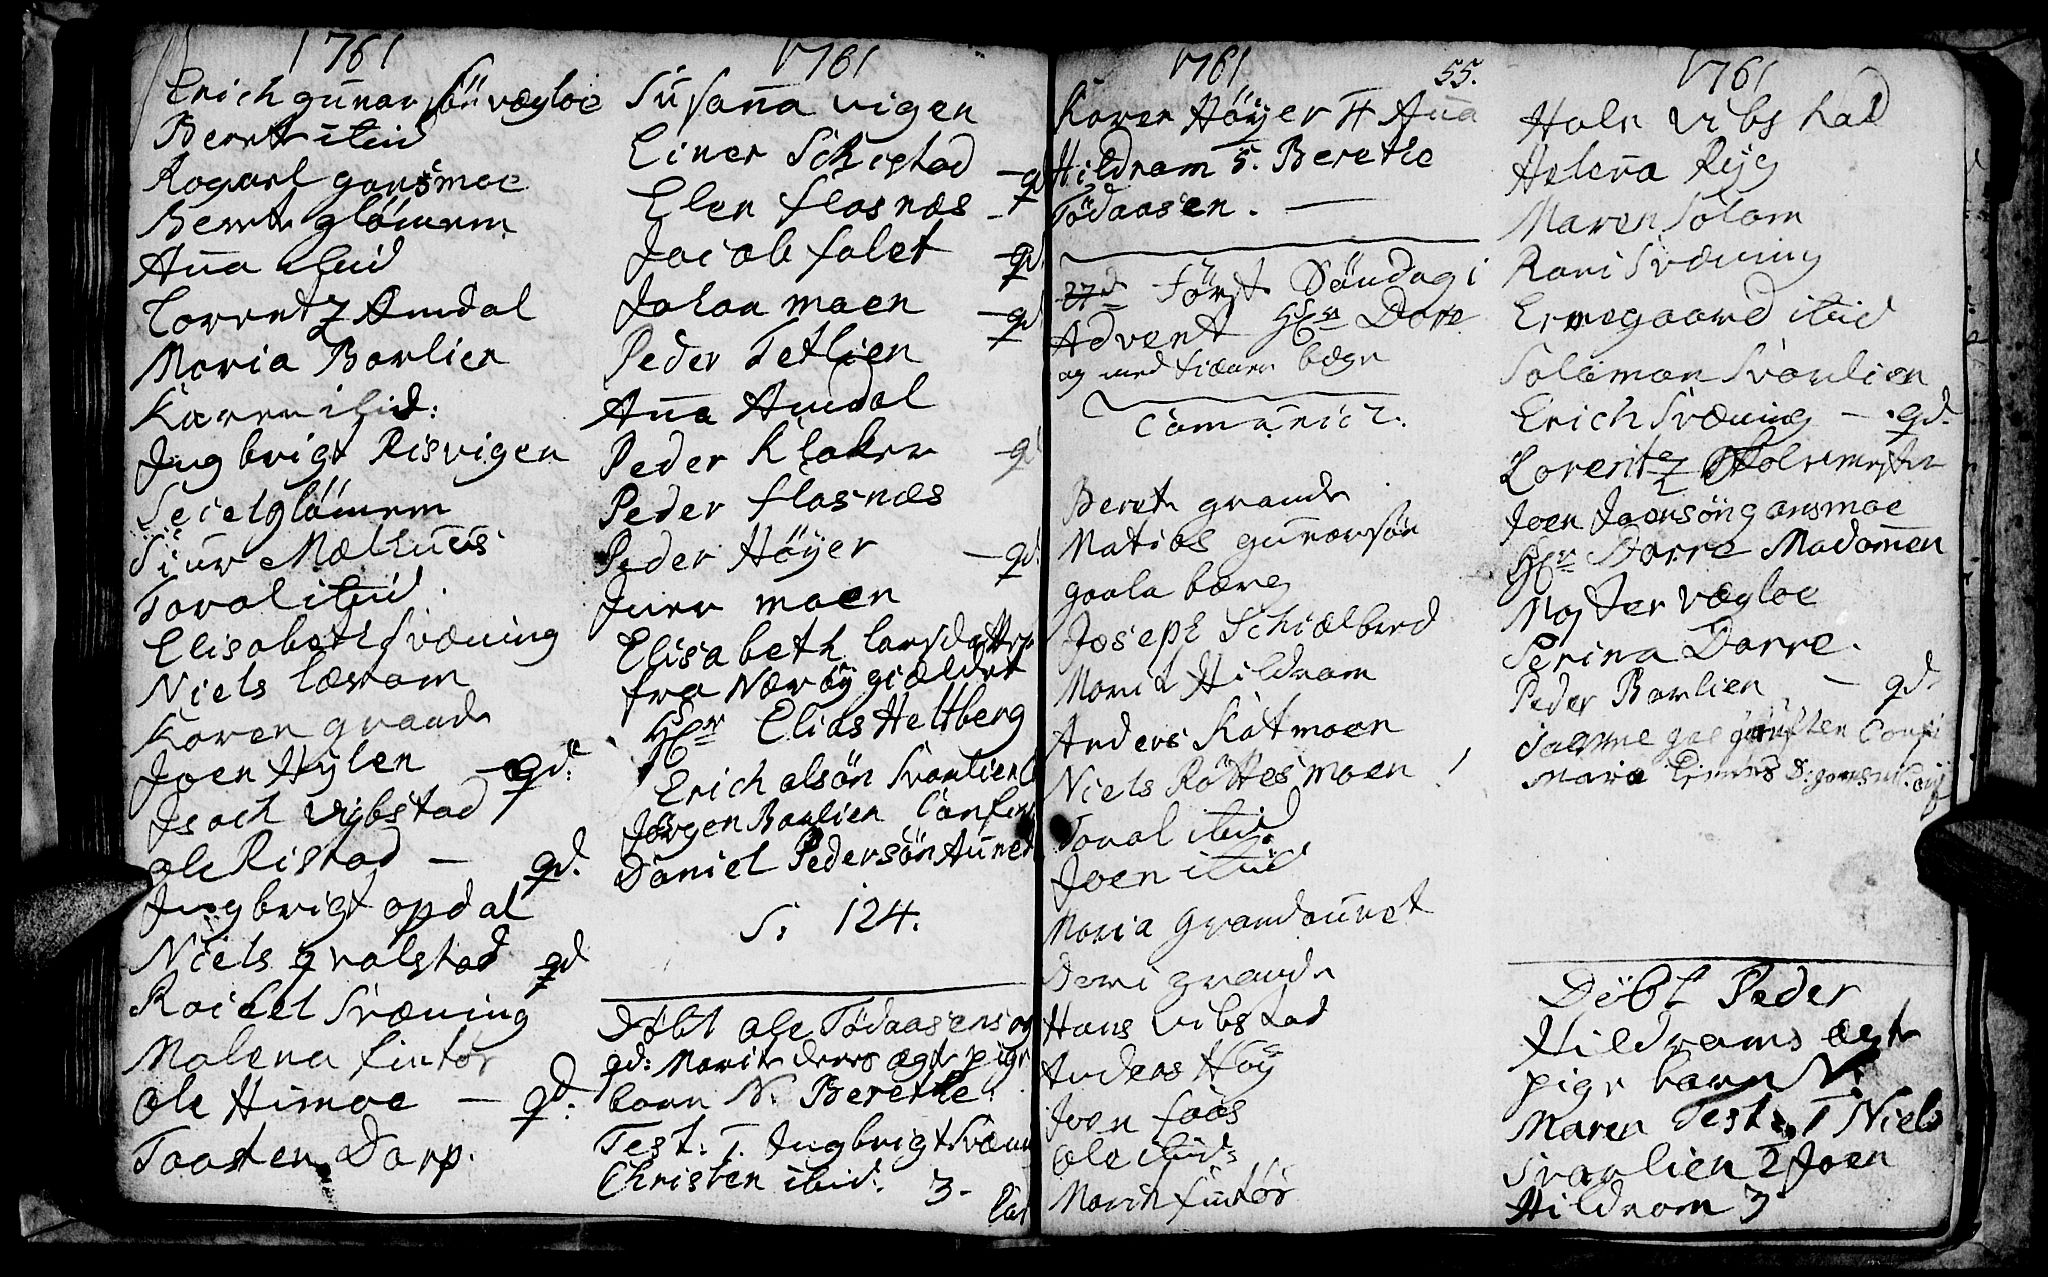 1761
Erich gunar Sön vægloe
Beret ibid
Roparl gansmoe
Beret glömem
Anna ibid
Lorentz Amdal
Maria Barlien
Karen ibid:
Ingbrigt Risvigen
Seiel glömem
Siur Mælhus
Taral ibid.
Elisabeth Sræning
Niels Læram
Karen grande
Joen Hylen - qd:
Isach vibstad
Ole Ristad - qd.
Ingbrigt opdal
Niels gralstad qd
Rachel Sræning
Malena fintör
Ole Himoe - qd:
Taasten Darp.
1761
Susanna vigen
Einer Schistad
Elen flasnæs - q
Jacob falet - qd.
Johan moen - qd
Peder Tetlien
Anna Amdal
Peder Klaken - q
Peder flasnæs
Peder Höyer - qd.
Iver moen
Elisabeth Larsdatter
fra Næröy giældet
Hr Elias Heltberg
Erich olsön Svarlien
Jörgen Barlien Confir
Daniel Pedersön Aunet
S. 124.
Döbt ole Tödaasens og
qd: Marit deres ægt pige
barn N. Berethe
Test: 1. Ingbrigt Sræn
Christen ibid. 3.
Kar
1761
55.
Karen Höyer 4 Anna
Hildram 5. Berethe
Tödaasen. -
27d Först Söndag i
Advent Hr Dare
og med
Comunicz.
Beret grande
Matias gunarsön
gaalabærg
Joseph Schiælbred
Marit Hildram
Anders Katmoen
Niels Röttesmoen
Taral ibid
Joen ibid
Maria Grandaunet
grande
Hans vibstad
Anders Höy
Joen faas
Ole ibid:
Marit fintör
1761
Hale vibstad
Helena Ryg
Maren Solam
Rani Sræning
Ermegaard ibid
Solamon Svarlien
Erich Sræning - qd.
Lorentz Skolemester
Joen Joensön gansmoe
Hr Darre Madamen
Mojter vægloe
Serina Darre.
Peder Barlien - qd.
Maria
Döbt Peder
Hildrams ægte
pige barn N:
Maren Test: 1 Niels
Svarlien 2 Joen
Hildram 3